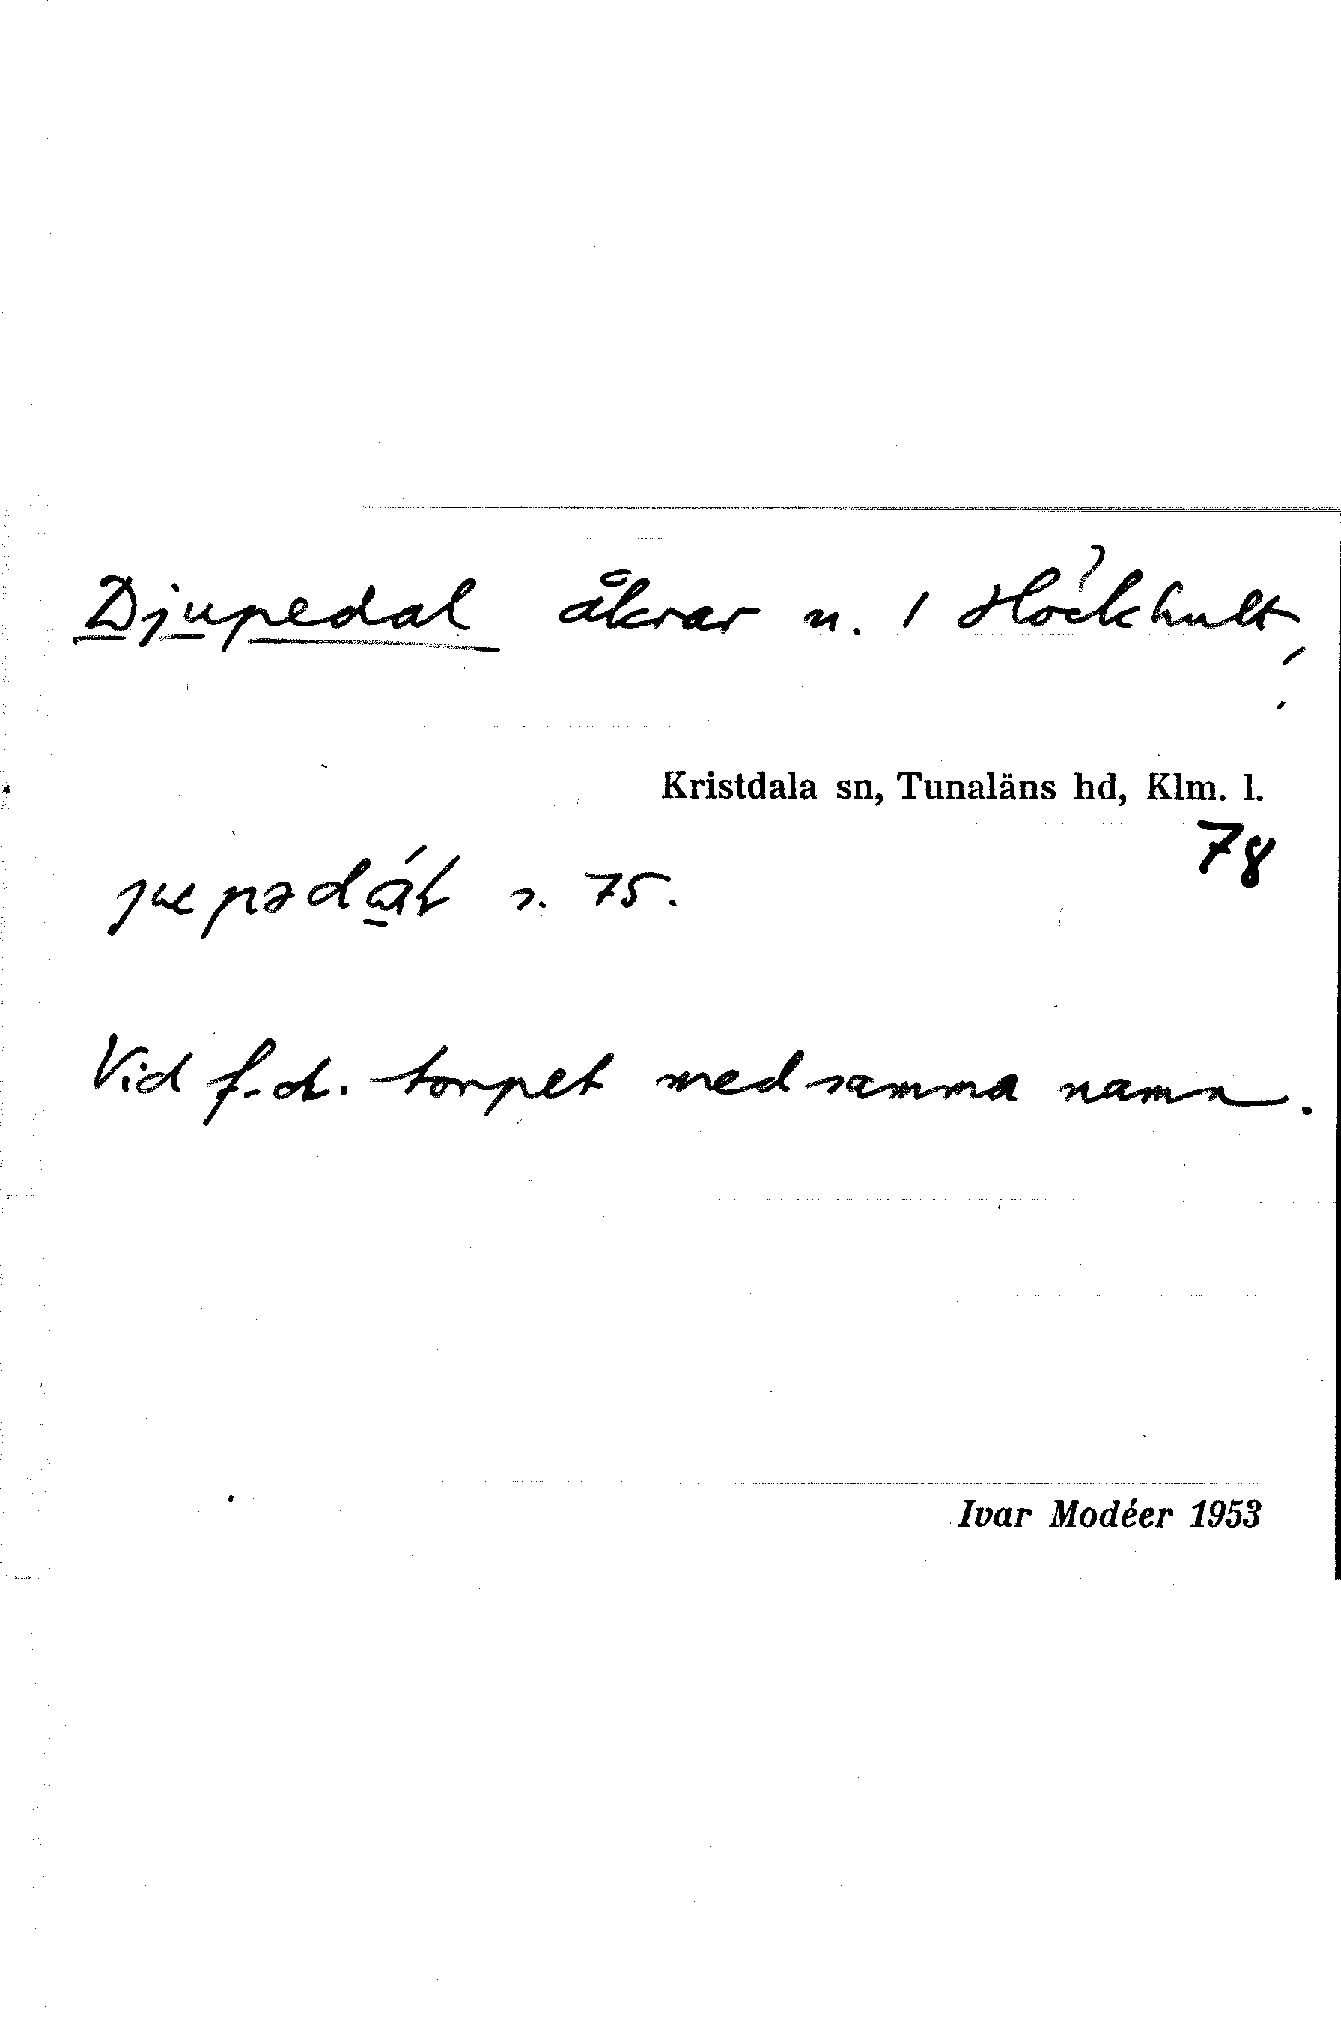 Djupedal åkrar n. 1 Hökhult,
Kristdala sn, Tunaläns hd, Klm. l.
78
s. 75.
Vid f.d. torpet med samma namn.
Ivar Modéer 1953